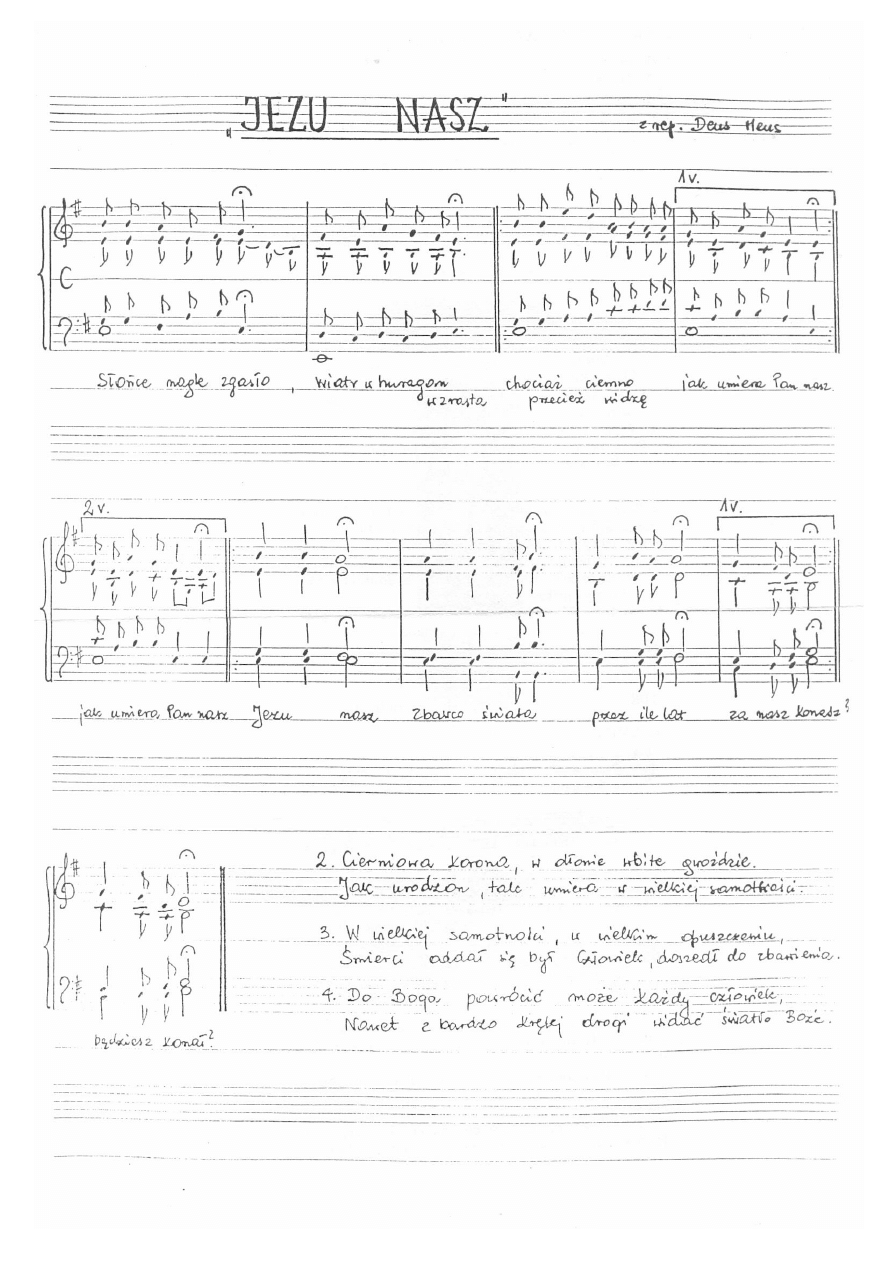 „JEZU NASZ"
z rep. Deus Meus
1v.
Słońce nagle zgasło, wiatr w huragan chociaż ciemno jak umiera Pan nasz
wzrasta przecież widzę
2v. 1v.
jak umiera Pan nasz Jezu nasz Zbawco świata przez ile lat za nasz konasz?
będziesz konał?
2. Cierniowa korona, w dłonie wbite gwoździe.
Jak urodzon, tak umiera w wielkiej samotności.
3. W wielkiej samotności, w wielkim opuszczeniu,
Śmierci oddał się był Człowiek, doszedł do zbawienia.
4. Do Boga powrócić może każdy człowiek,
Nawet z bardzo krętej drogi widać światło Boże.